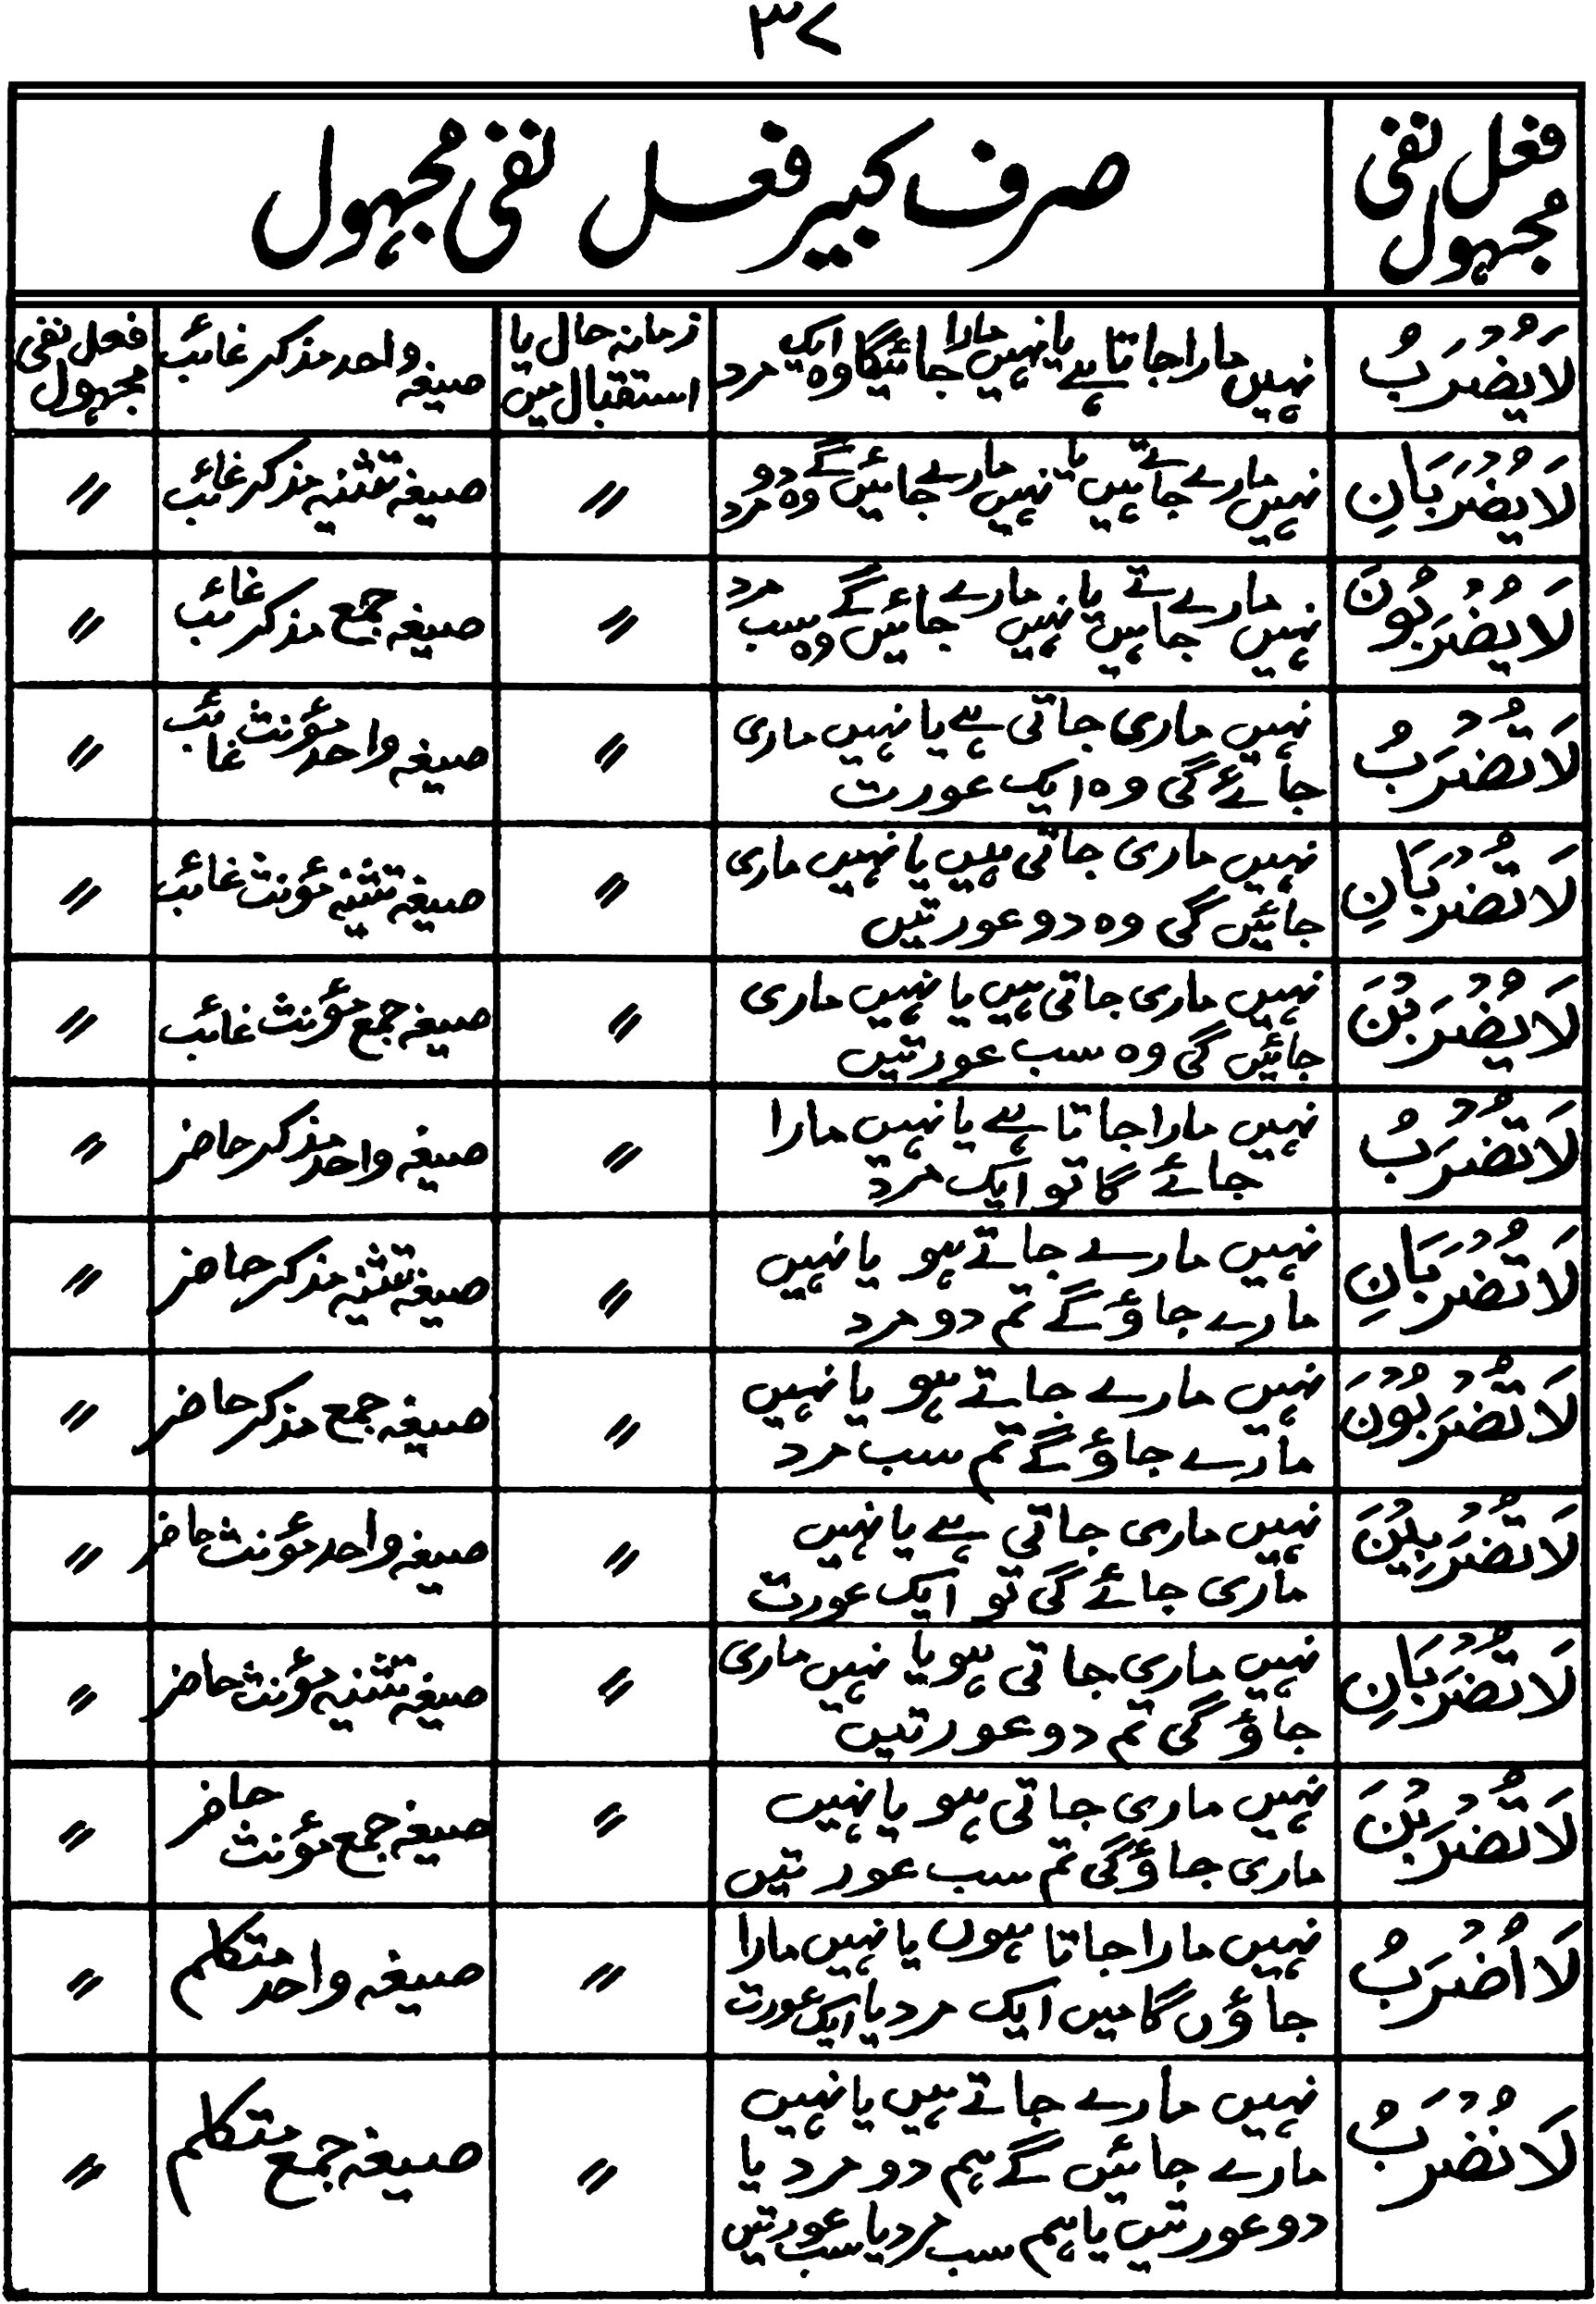 ۳۷
فعل نفی مجہول صرف کبیر فعل نفی مجہول
لَا يُضْرَبُ نہیں مارا جاتا ہے یا نہیں مارا جائیگا وہ ایک مرد زمانہ حال یا استقبال میں صیغہ واحد مذکر غائب فعل نفی مجہول
لَا يُضْرَبَانِ نہیں مارے جاتے ہیں یا نہیں مارے جائیں گے وہ دو مرد 〃 صیغہ تثنیہ مذکر غائب 〃
لَا يُضْرَبُوْنَ نہیں مارے جاتے ہیں یا نہیں مارے جائیں گے وہ سب مرد 〃 صیغہ جمع مذکر غائب 〃
لَا تُضْرَبُ نہیں ماری جاتی ہے یا نہیں ماری
جائے گی وہ ایک عورت 〃 صیغہ واحد مؤنث غائب 〃
لَا تُضْرَبَانِ نہیں ماری جاتی ہیں یا نہیں ماری
جائیں گی وہ دو عورتیں 〃 صیغہ تثنیہ مؤنث غائب 〃
لَا يُضْرَبْنَ نہیں ماری جاتی ہیں یا نہیں ماری
جائیں گی وہ سب عورتیں 〃 صیغہ جمع مؤنث غائب 〃
لَا تُضْرَبُ نہیں مارا جاتا ہے یا نہیں مارا
جائے گا تو ایک مرد 〃 صیغہ واحد مذکر حاضر 〃
لَا تُضْرَبَانِ نہیں مارے جاتے ہو یا نہیں
مارے جاؤ گے تم دو مرد 〃 صیغہ تثنیہ مذکر حاضر 〃
لَا تُضْرَبُوْنَ نہیں مارے جاتے ہو یا نہیں
مارے جاؤ گے تم سب مرد 〃 صیغہ جمع مذکر حاضر 〃
لَا تُضْرَبِيْنَ نہیں ماری جاتی ہے یا نہیں
ماری جائے گی تو ایک عورت 〃 صیغہ واحد مؤنث حاضر 〃
لَا تُضْرَبَانِ نہیں ماری جاتی ہو یا نہیں ماری
جاؤ گی تم دو عورتیں 〃 صیغہ تثنیہ مؤنث حاضر 〃
لَا تُضْرَبْنَ نہیں ماری جاتی ہو یا نہیں
ماری جاؤ گی تم سب عورتیں 〃 صیغہ جمع مؤنث حاضر 〃
لَا اُضْرَبُ نہیں مارا جاتا ہوں یا نہیں مارا
جاؤں گا میں ایک مرد یا ایک عورت 〃 صیغہ واحد متکلم 〃
لَا نُضْرَبُ نہیں مارے جاتے ہیں یا نہیں
مارے جائیں گے ہم دو مرد یا
دو عورتیں یا ہم سب مرد یا سب عورتیں 〃 صیغہ جمع متکلم 〃